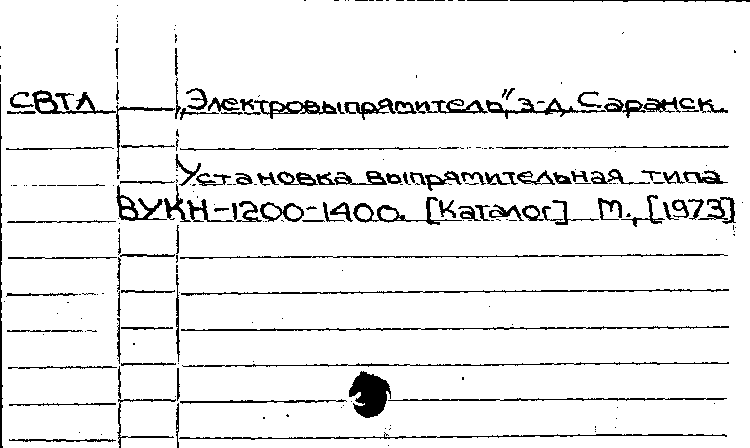 СВТЛ „Электровыпрямитель", з-д. Саранск.
Установка выпрямительная типа
ВУКН-1200-1400. [Каталог] М., [1973]